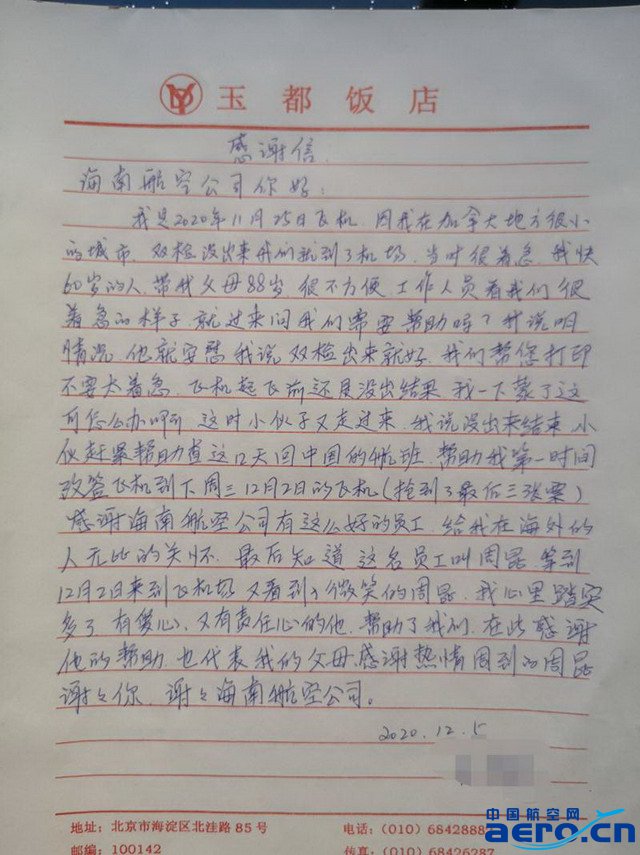 玉都饭店
感谢信
海南航空公司你好:
我是2020年11月25日飞机.因我在加拿大地方很小
的城市.双检没出来我们就到了机场.当时很着急.我快
60岁的人.带我父母88岁.很不方便.工作人员看我们很
着急的样子就过来问我们需要帮助吗?我说明
情况.他就安慰我说双检出来就好.我们帮您打印
不要太着急.飞机起飞前还是没出结果.我一下蒙了这
可怎么办啊.这时小伙子又走过来.我说没出来结束.小
伙赶紧帮助查这几天回中国的航班.帮助我第一时间
改签飞机到下周三12月2日的飞机(抢到了最后三张票)
感谢海南航空公司有这么好的员工.给我在海外的
人无比的关怀.最后知道这名员工叫周昆.等到
12月2日来到飞机场又看到了微笑的周昆.我心里踏实
多了.有爱心.又有责任心的他.帮助了我们.在此感谢
他的帮助.也代表我的父母感谢热情周到的周昆
谢々你.谢々海南航空公司。
2020.12.5
地址:北京市海淀区北洼路85号
电话:(010)6842888
邮编:100142
传真:(010)68426287
中国航空网
aero.cn